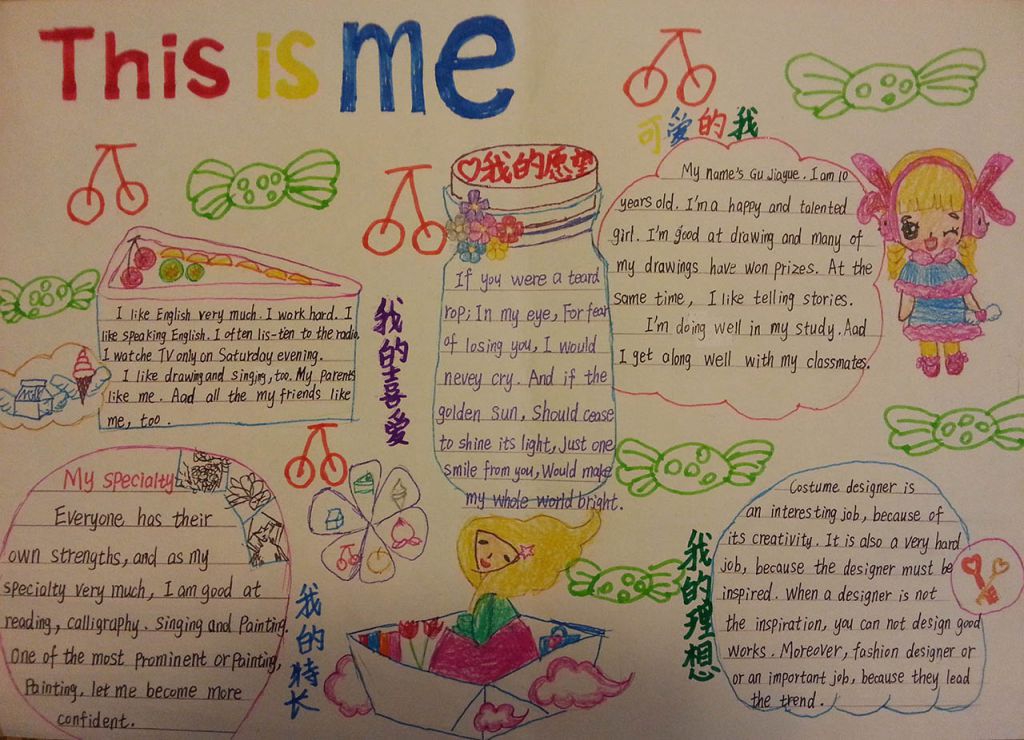 This is me
可爱的我
My name's Gu Jiayue. I am 10
years old. I'm a happy and talented
girl. I'm good at drawing and many of
my drawings have won prizes. At the
same time, I like telling stories.
I'm doing well in my study. Aad
I get along well with my classmates.
♡我的愿望
If you were a teard
rop; In my eye, For fear
of losing you, I would
nevey cry. And if the
golden sun, Should cease
to shine its light, Just one
smile from you, Would make
my whole world bright.
我的喜爱
I like English very much. I work hard. I
like speaking English. I often lis-ten to the radio.
I watche TV only on Saturday evening.
I like drawing and singing, too. My parents
like me. Aad all the my friends like
me, too.
Milk
My specialty
Everyone has their
own strengths, and as my
specialty very much, I am good at
reading, calligraphy. Singing and Painting.
One of the most prominent or Painting,
Painting, let me become more
confident.
我的特长
我的理想
Costume designer is
an interesting job, because of
its creativity. It is also a very hard
job, because the designer must be
inspired. When a designer is not
the inspiration, you can not design good
works. Moreover, fashion designer or
or an important job, because they lead
the trend.